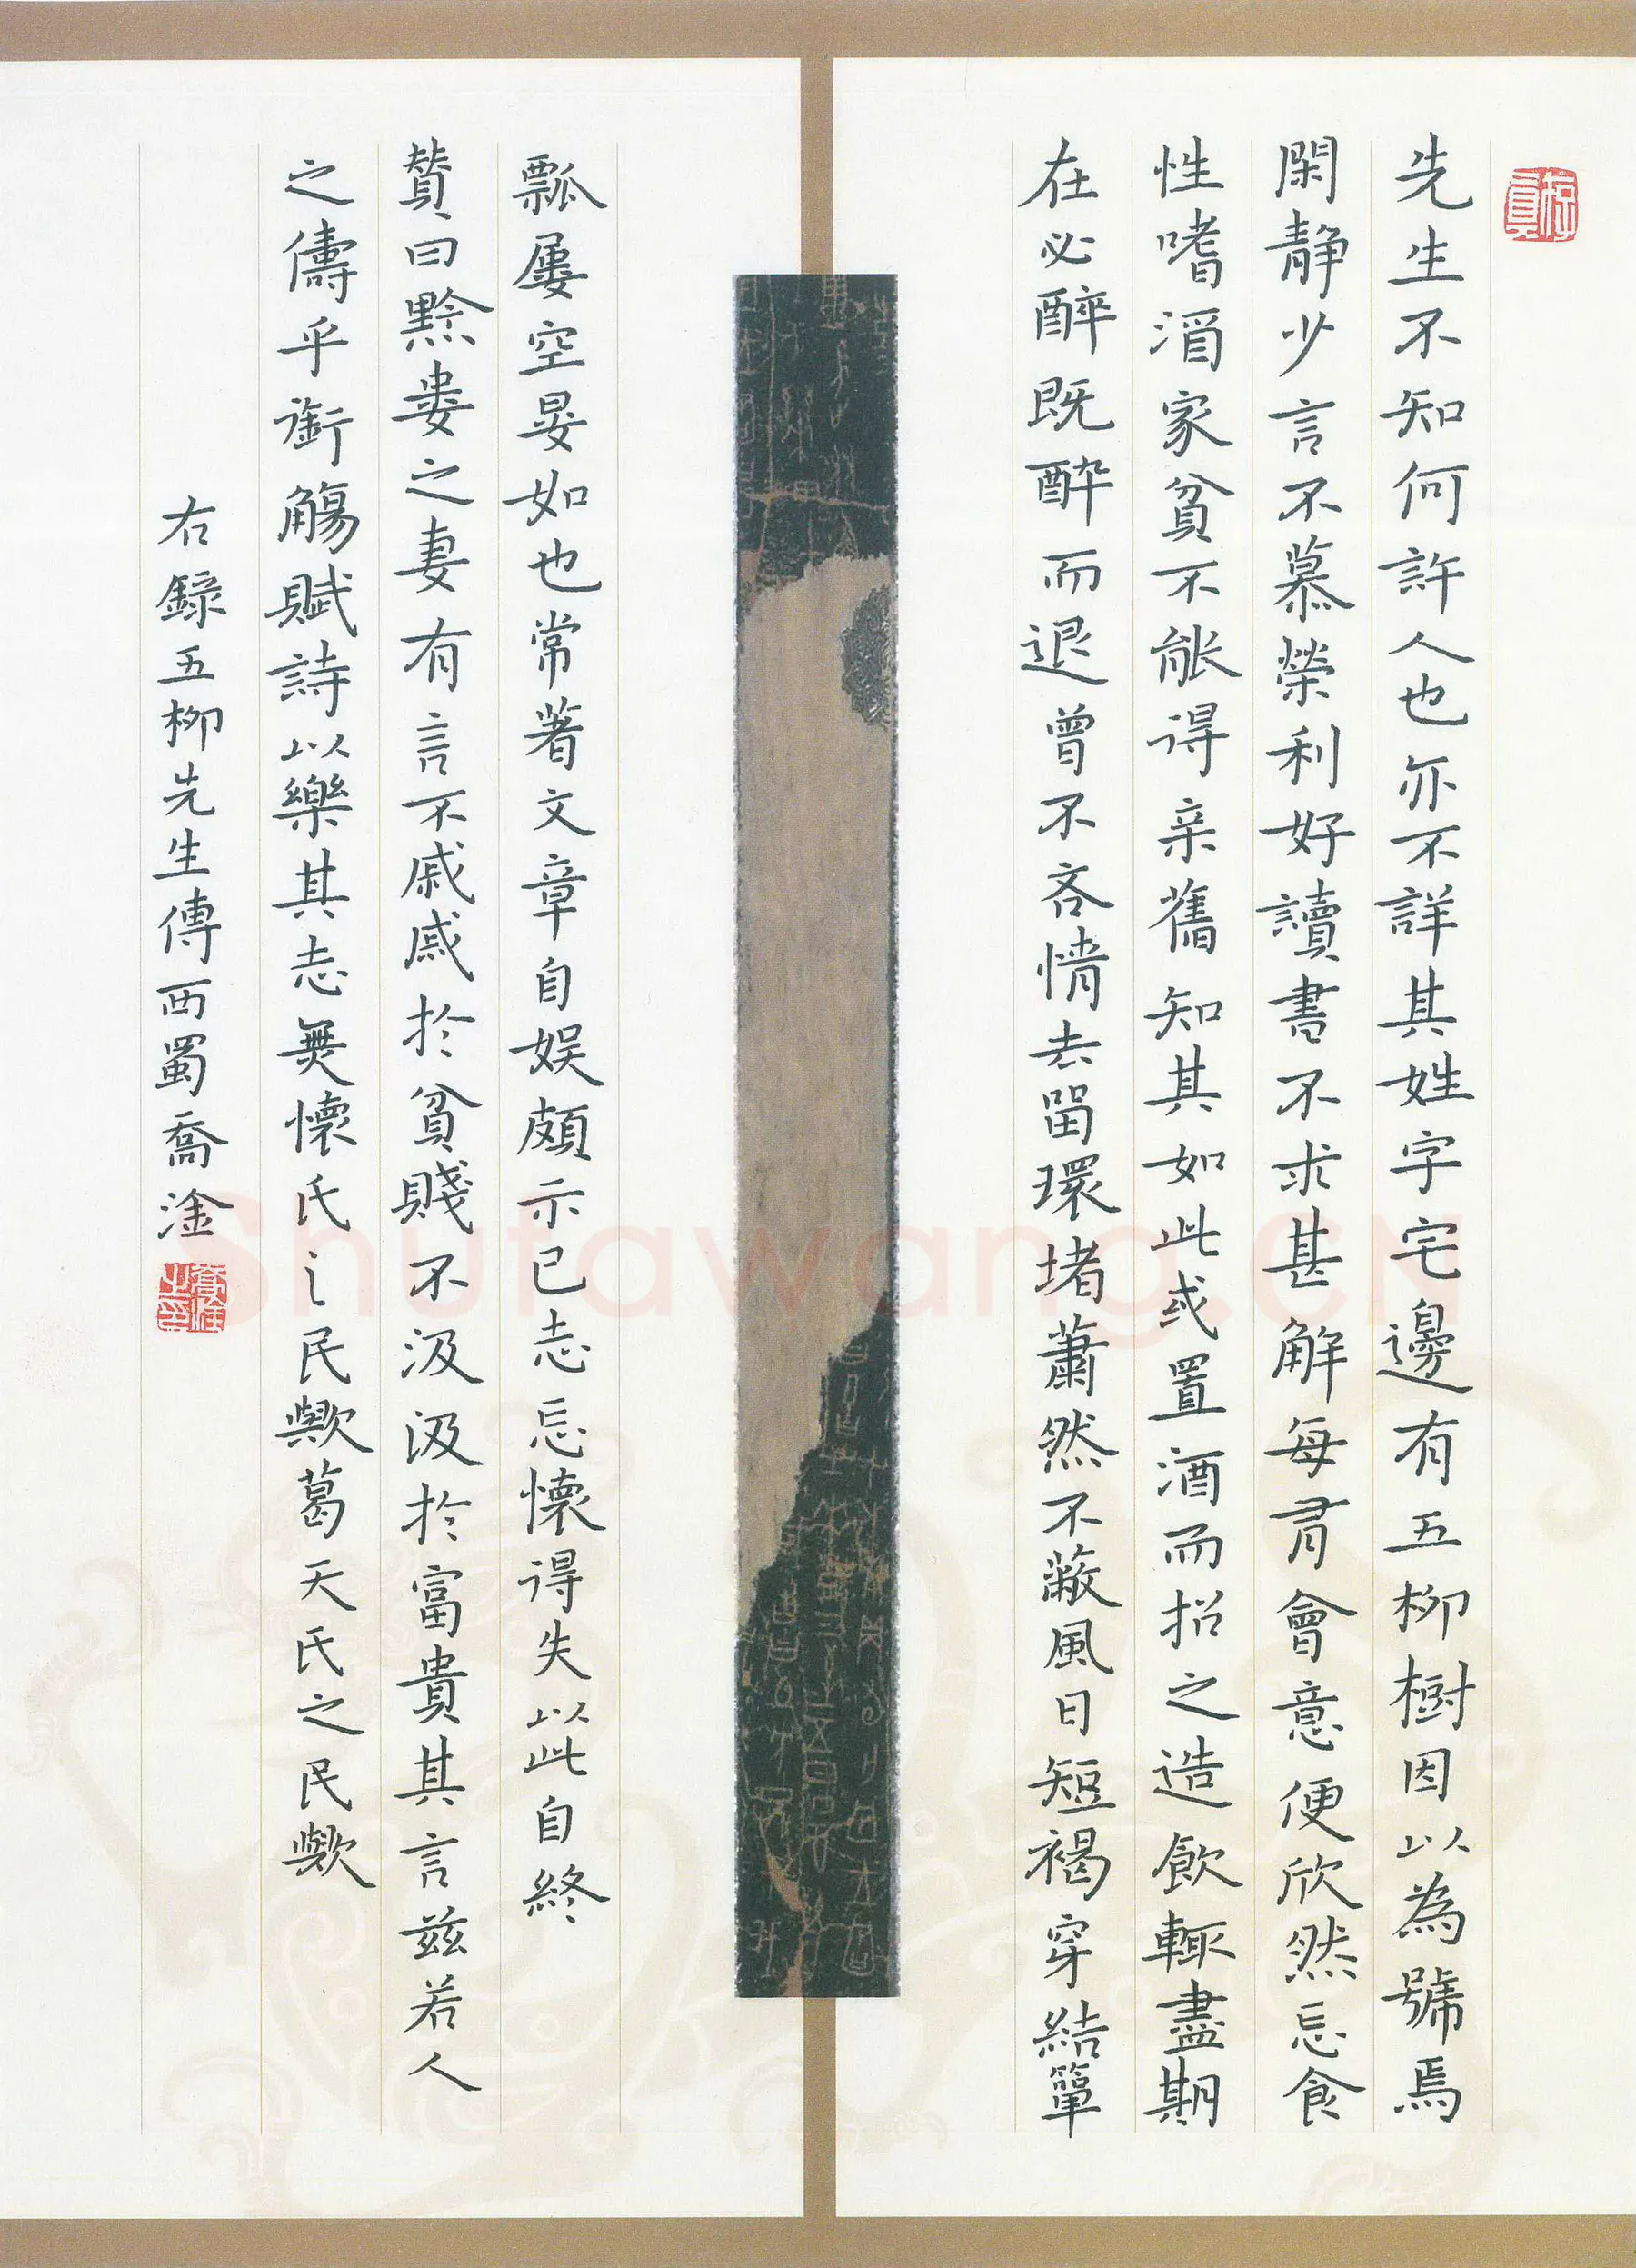 先生不知何許人也亦不詳其姓字宅邊有五柳樹因以為號焉
閑静少言不慕榮利好讀書不求甚解每有會意便欣然忘食
性嗜酒家貧不能得親舊知其如此或置酒而招之造飲輒盡期
在必醉既醉而退曾不吝情去留環堵蕭然不蔽風日短褐穿結簞
瓢屢空晏如也常著文章自娱頗示己志忘懷得失以此自終
贊曰黔婁之妻有言不戚戚於貧賤不汲汲於富貴其言兹若人
之儔乎銜觴賦詩以樂其志無懷氏之民歟葛天氏之民歟
右録五柳先生傳西蜀喬淦
Shufawang.CN